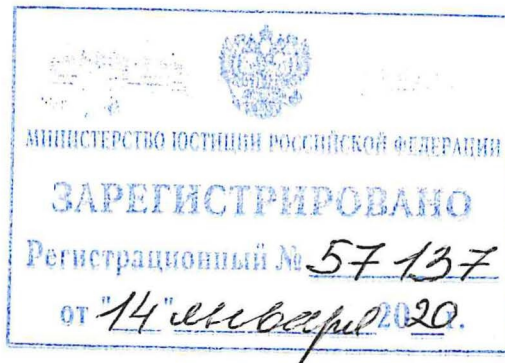 МИНИСТЕРСТВО ЮСТИЦИИ РОССИЙСКОЙ ФЕДЕРАЦИИ
ЗАРЕГИСТРИРОВАНО
Регистрационный № 57137
от "14" января 2020 г.